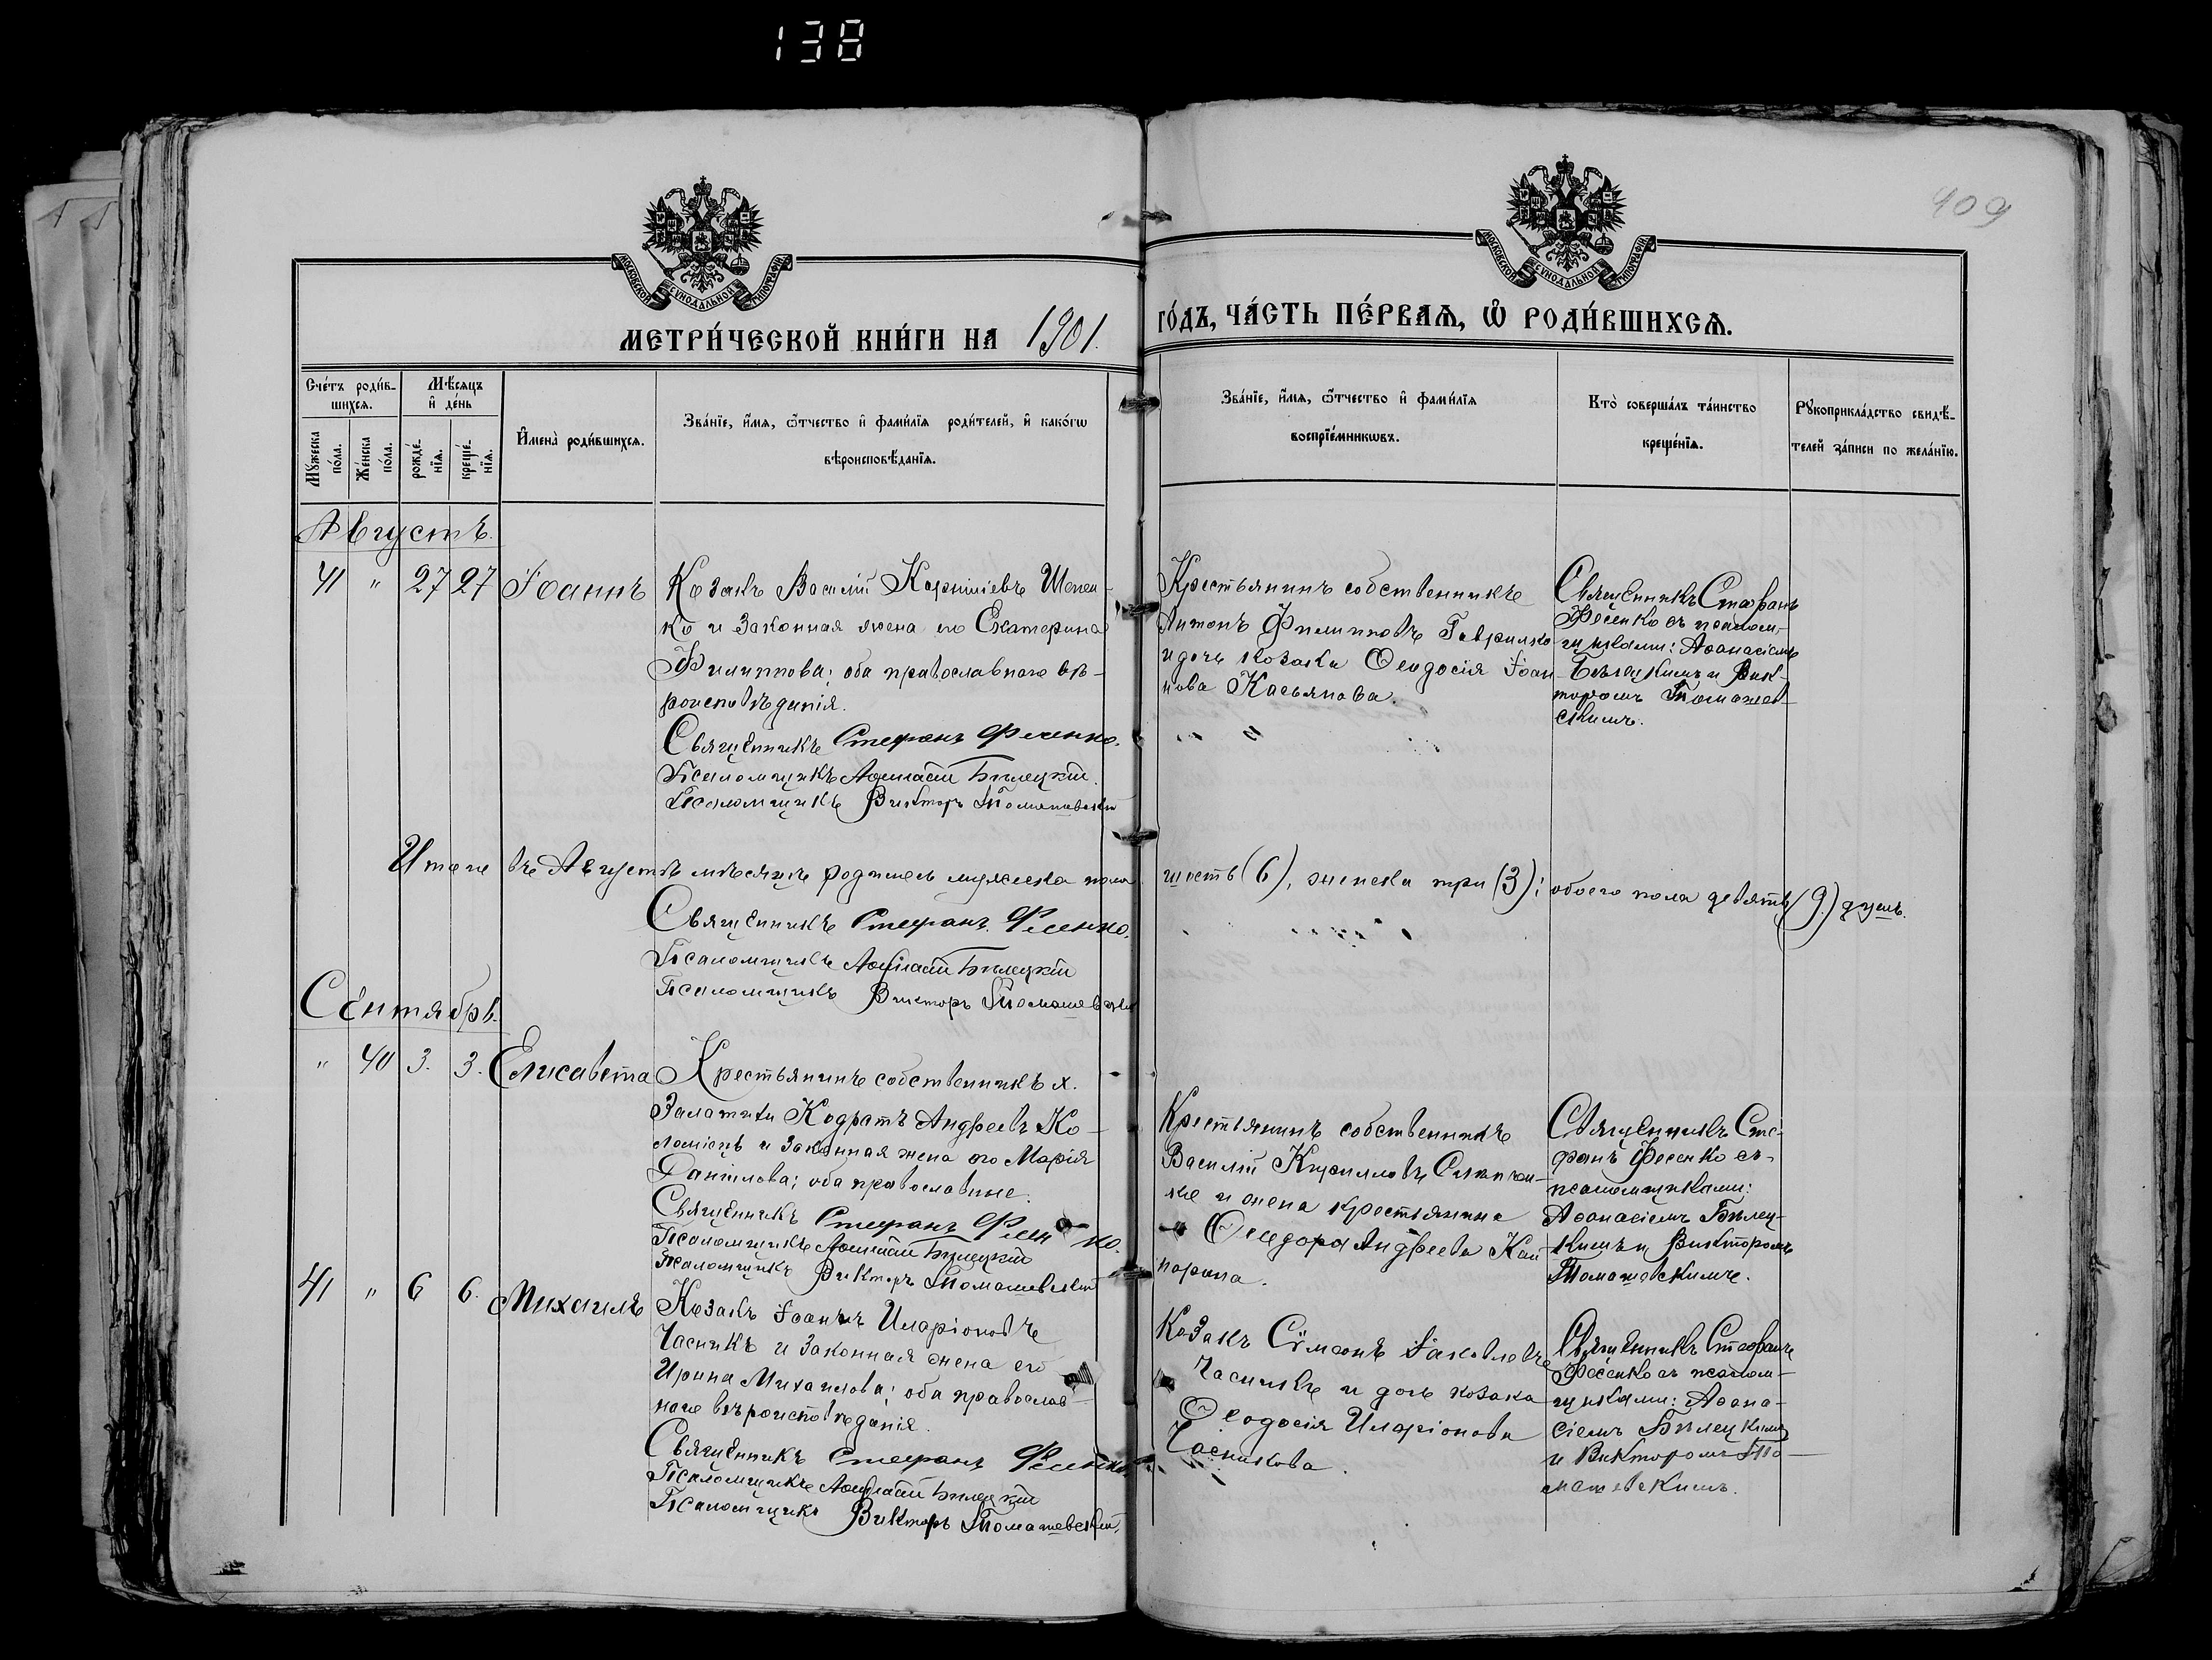 138
409
МОСКОВСКОЙ СѴНОДАЛЬНОЙ ТИПОГРАФІИ
МОСКОВСКОЙ СѴНОДАЛЬНОЙ ТИПОГРАФІИ
МЕТРИ́ЧЕСКОЙ КНИ́ГИ НА 1901. ГО́ДЪ, ЧА́СТЬ ПЕ́РВАѦ, Ѽ РОДИ́ВШИХСѦ.
Сче́тъ роди́в-
шихсѧ.
Мꙋжеска
по́ла.
Же́нска
по́ла.
Мѣ́сѧцъ
и҆ де́нь
рожде́-
нїѧ.
креще́-
нїѧ.
И҆мена̀ роди́вшихсѧ.
Зва́нїе, и҆́мѧ, ѻ҆́тчество и҆ фами́лїѧ роди́телей, и҆ како́гѡ
вѣроисповѣ́данїѧ.
Зва́нїе, и҆́мѧ, ѻ҆́тчество и҆ фами́лїѧ
воспрїе́мникѡвъ.
Кто̀ соверша́лъ та́инство
креще́нїѧ.
Рꙋкоприкла́дство свидѣ́-
телей за́писи по жела́нїю.
Августъ.
41 " 27 27 Іоаннъ
Козакъ Василій Шепен-
ко и законная жена его Екатерина
Филиппова; оба православнаго вѣ-
роисповѣданія.
Священникъ Стефанъ Фесенко.
Псаломщикъ Аѳанасій Бѣлецкій.
Псаломщикъ Викторъ Томашевскій
Крестьянинъ собственникъ
Антонъ Филипповъ Гаврилко
и дочь козака Ѳеодосія Іоан-
нова Касьянова.
Священникъ Стефанъ
Фесенко съ псалом-
щиками: Аѳанасіемъ
Бѣлецкимъ и Вик-
торомъ Томашев-
скимъ.
Итого въ Августѣ мѣсяцѣ родилось мужеска пола шесть (6), женска три (3); обоего пола девять (9) душъ.
Священникъ Стефанъ Фесенко.
Псаломщикъ Аѳанасій Бѣлецкій
Псаломщикъ Викторъ Томашевскій
Сентябрь.
" 40 3. 3. Елисавета
Крестьянинъ собственникъ х.
Кодратъ Андреевъ Ко-
ломіецъ и законная жена его Марія
Даніилова; оба православные.
Священникъ Стефанъ Фесенко.
Псаломщикъ Аѳанасій Бѣлецкій
Псаломщикъ Викторъ Томашевскій
Крестьянинъ собственникъ
Василій Кирилловъ
и жена крестьянина
Ѳеодора Андреева
Священникъ Сте-
фанъ Фесенко съ
псаломщиками:
Аѳанасіемъ Бѣлец-
кимъ и Викторомъ
Томашевскимъ.
41 " 6 6. Михаилъ
Козакъ Іоаннъ Иларіоновъ
Часникъ и законная жена его
Ирина Михаилова; оба православ-
наго вѣроисповѣданія.
Священникъ Стефанъ Фесенко.
Псаломщикъ Аѳанасій Бѣлецкій
Псаломщикъ Викторъ Томашевскій.
Козакъ Сѵмеонъ Іаковлевъ
Часникъ и дочь козака
Ѳеодосія Иларіонова
Часникова.
Священникъ Стефанъ
Фесенко съ псалом-
щиками: Аѳана-
сіемъ Бѣлецкимъ
и Викторомъ То-
машевскимъ.